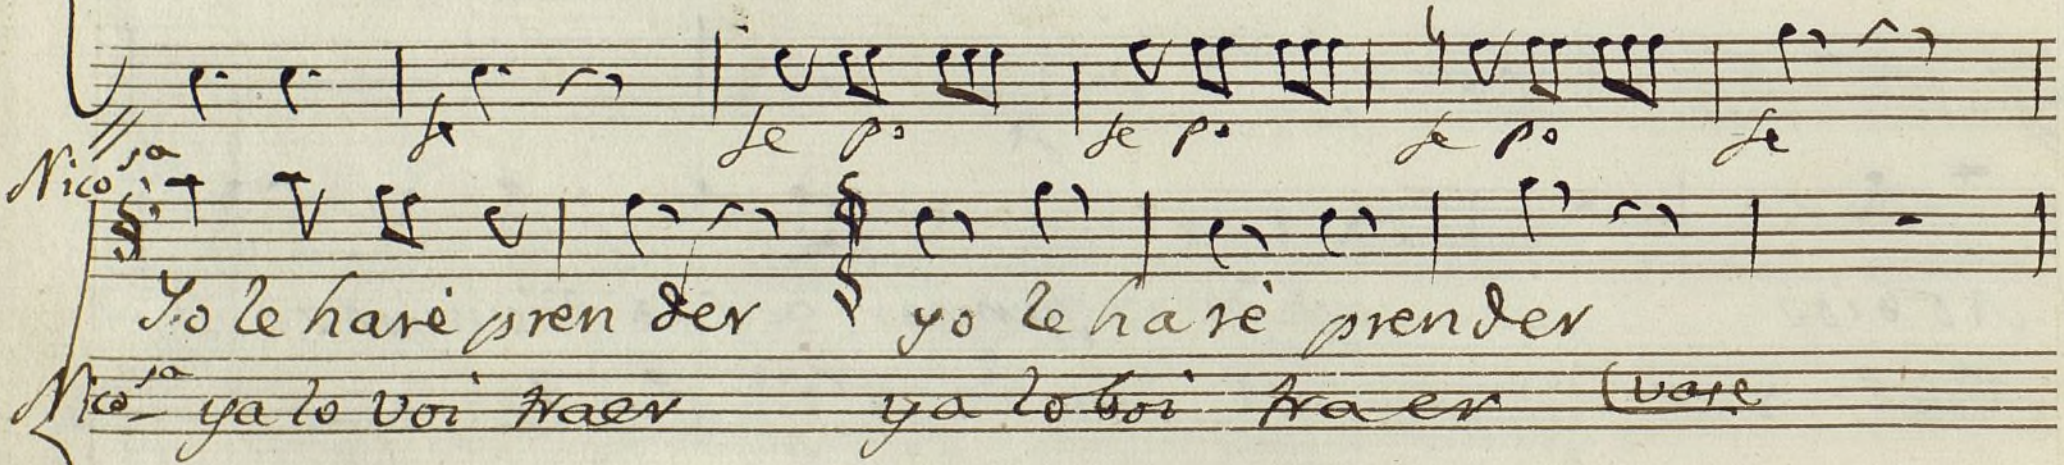 fe fe po fe po fe po fe
Nico.sa
Yo le harè prender yo le harè prender
Nico.sa ya lo voi traer ya lo boi traer (vase